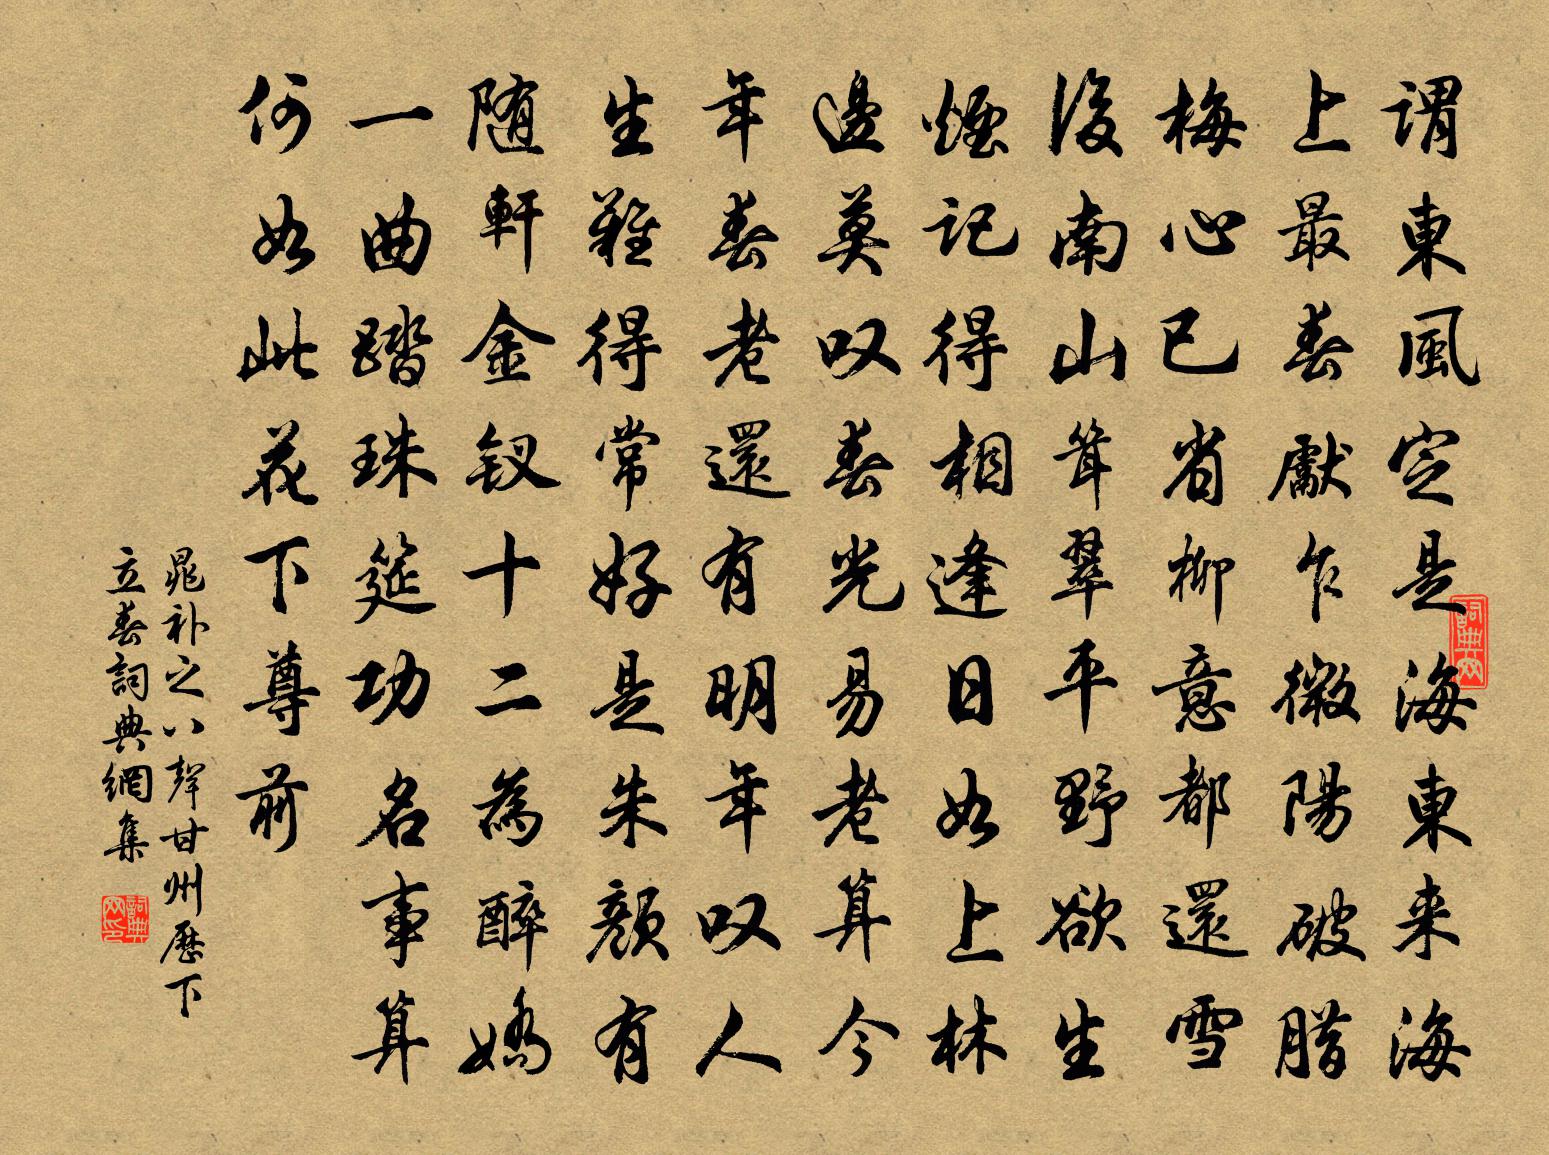 謂東風定是海東来海
上最春獻乍微陽破腊
梅心已省柳意都還雪
後南山耸翠平野欲生
煙記得相逢日如上林
邊莫叹春光易老算今
年春老還有明年叹人
生難得常好是朱顏有
随軒金钗十二為醉嬌
一曲踏珠筵功名事算
何如此花下尊前
晁补之八聲甘州歷下
立春詞典網集
詞典网
詞典网印